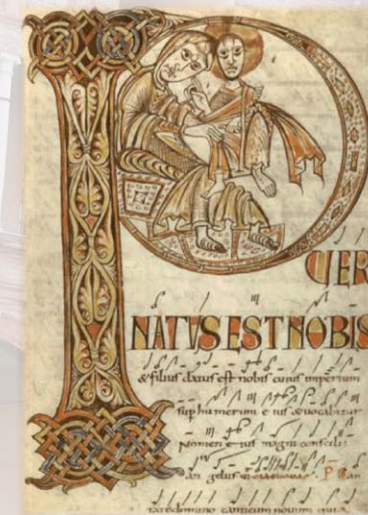 P
UER
NATUS EST NOBIS
& filius datus est nobis cuius imperium
sup humerum eius & vocabitur
nomen eius magni consilii
an gelus
tate domino canticum novum quia